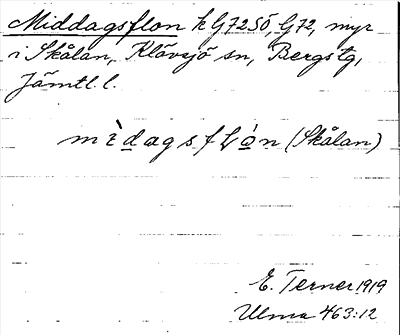 Middagsflon k G72SÖ, G72, myr
i Skålan, Klövsjö sn, Bergs tg,
Jämtl. l.
mìdagsflón (Skålan)
E. Terner 1919
Ulma 463:12